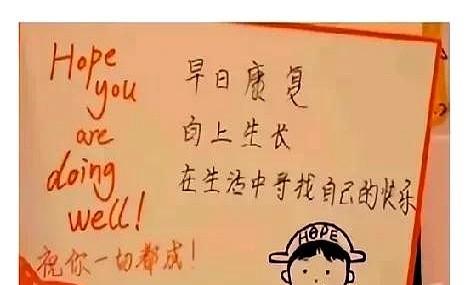 Hope
you
are
doing
well!
早日康复
向上生长
在生活中寻找自己的快乐
祝你一切都成!
HOPE